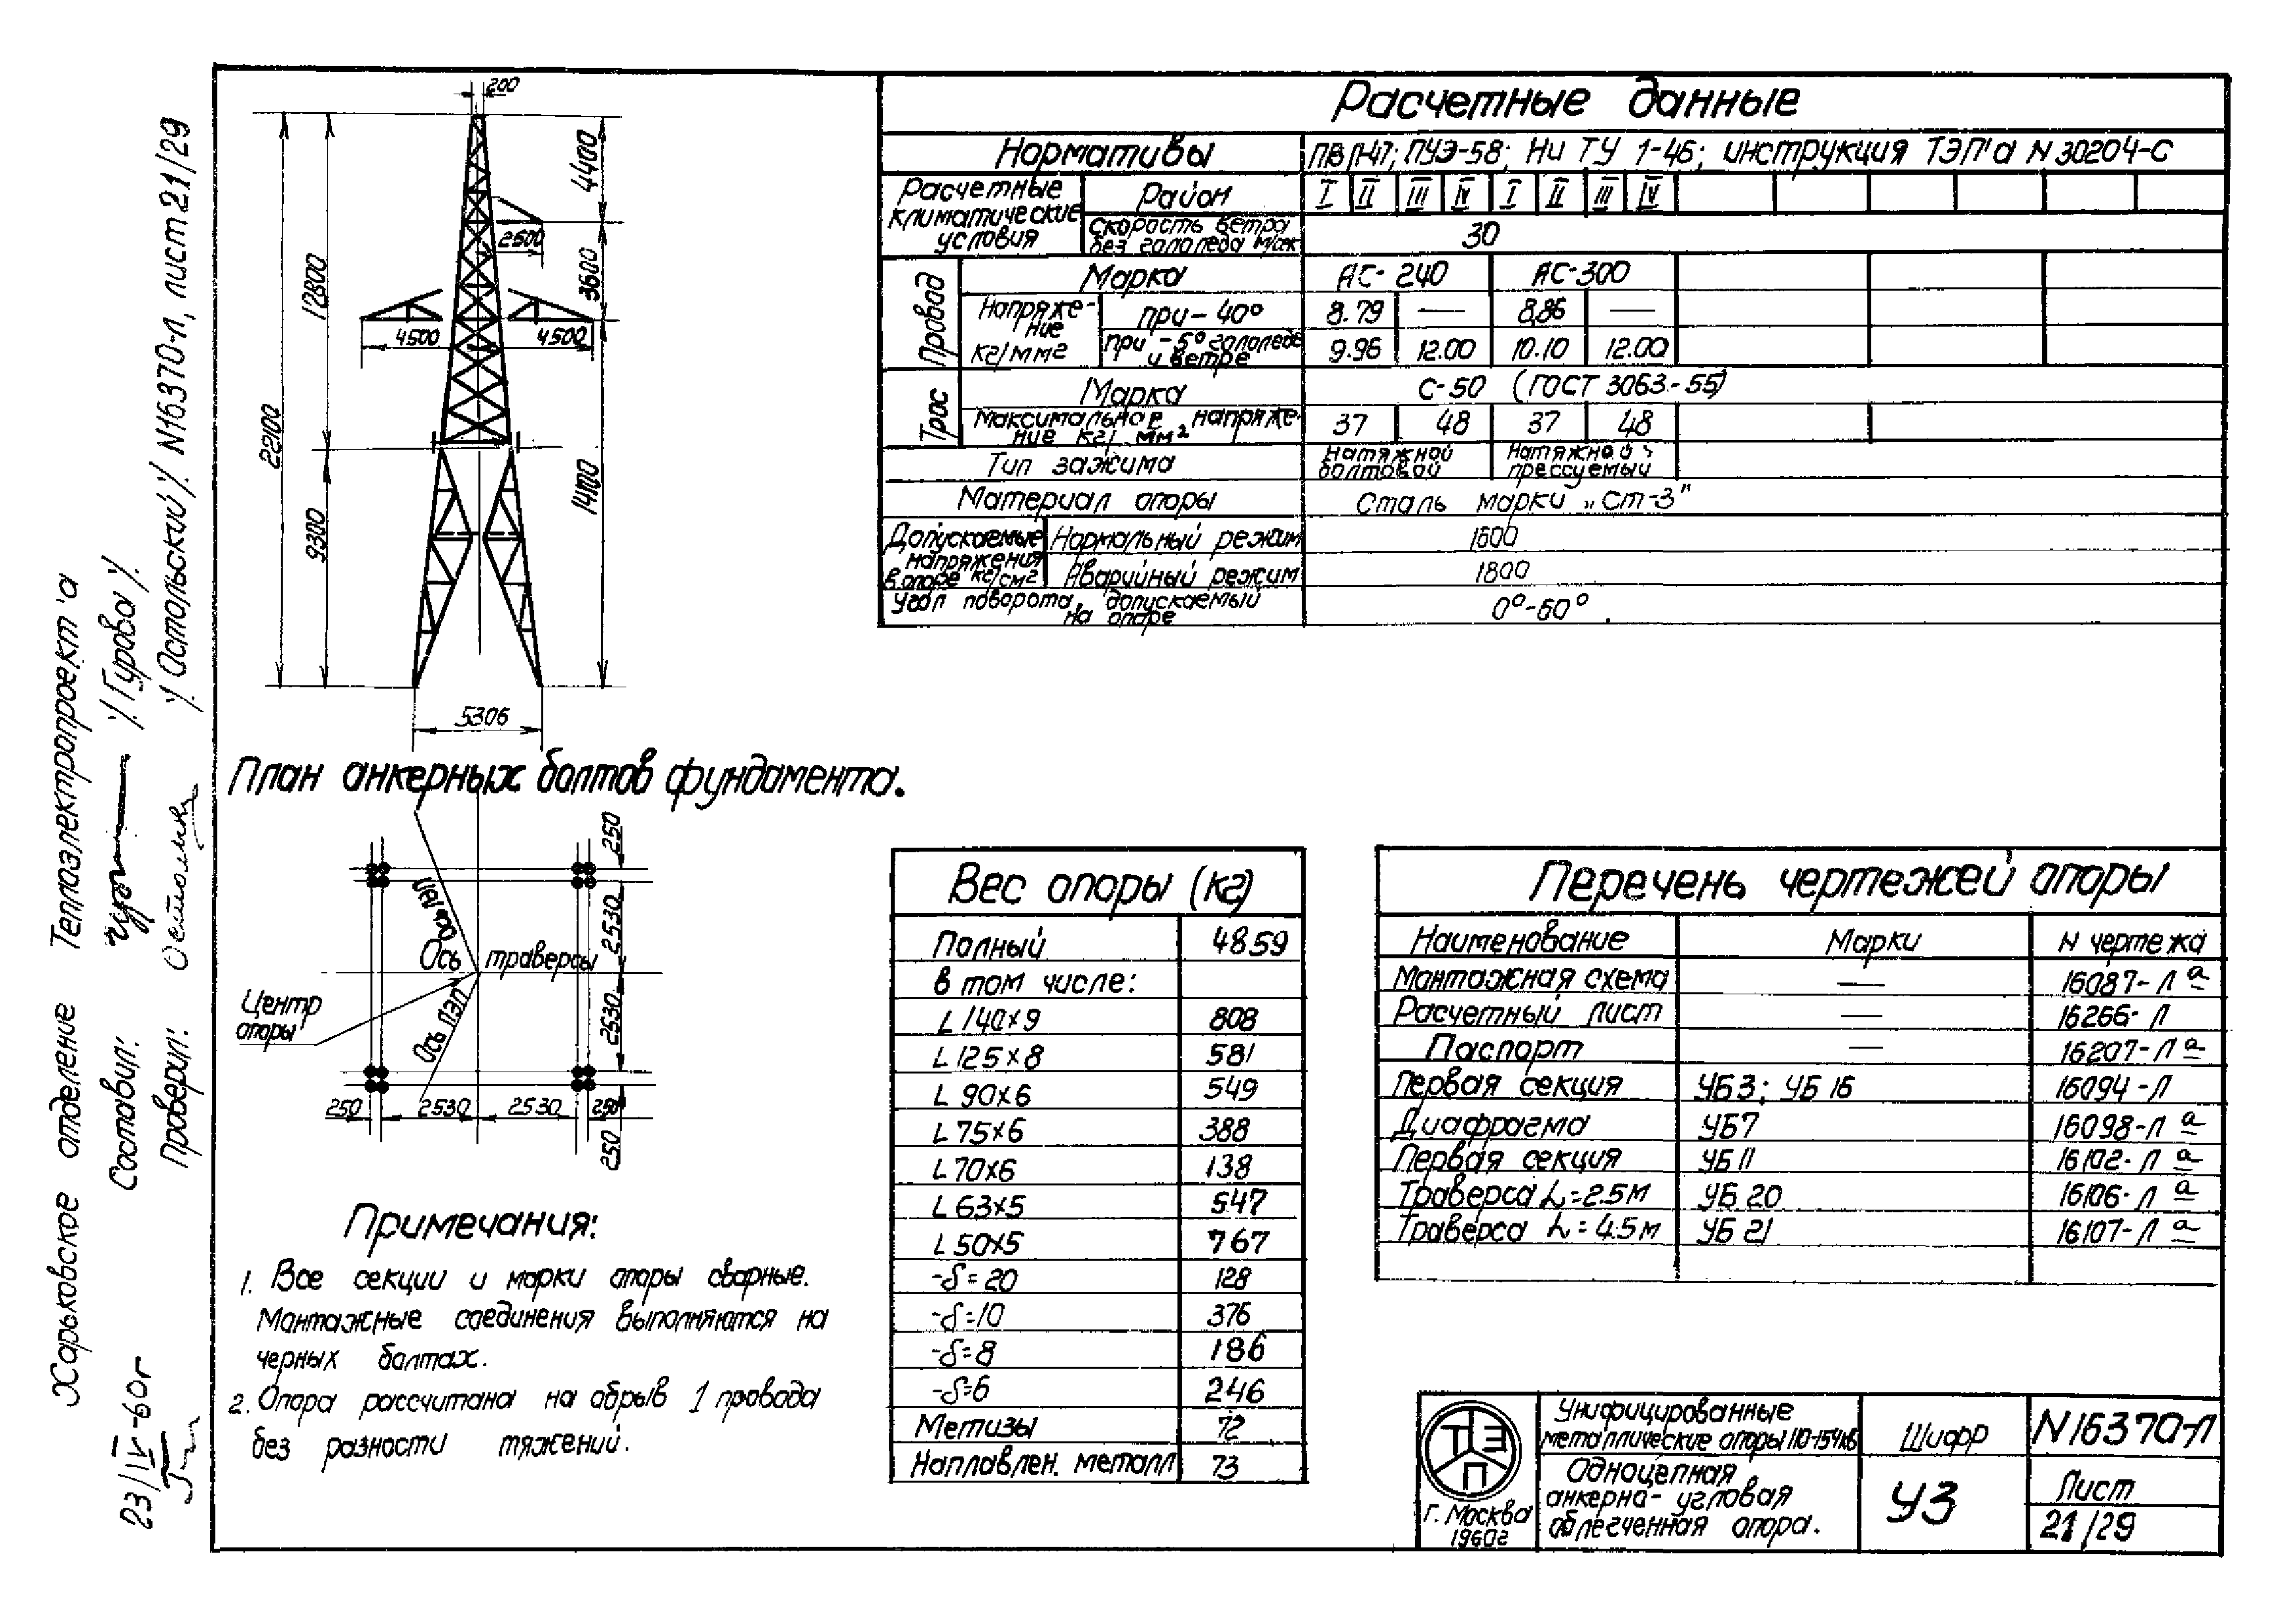 Харьковское отделение Теплоэлектропроект'а
Составил: /Гурова/.
Проверил: /Остольский/. N16370-л, лист 21/29
23/IV-60г
200
4400
2500
3600
12800
4500
4500
22100
14100
9300
5306
План анкерных болтов фундамента.
250
2530
Ось траверсы
Центр
опоры
Ось ЛЭП
2530
250
2530
2530
250
250
Примечания:
1. Все секции и марки опоры сварные.
Монтажные соединения выполняются на
черных болтах.
2. Опора рассчитана на обрыв 1 провода
без разности тяжений.
Расчетные данные
Нормативы ПВЛ-47; ПУЭ-58; Ни ТУ 1-46; инструкция ТЭП'а N 30204-С
Расчетные климатические условия Район I II III IV I II III IV
Скорость ветра без гололеда м/сек 30
Провод Марка АС-240 АС-300
Напряжение кг/мм2 при-40° 8.79 — 8,86 —
при -5° гололеде и ветре 9.96 12.00 10.10 12.00
Трос Марка С-50 (ГОСТ 3063-55)
Максимальное напряжение кг/мм² 37 48 37 48
Тип зажима Натяжной болтовой Натяжной прессуемый
Материал опоры Сталь марки „Ст-3"
Допускаемые напряжения в опоре кг/см2 Нормальный режим 1600
Аварийный режим 1800
Угол поворота, допускаемый на опоре 0°-60°
Вес опоры (кг)
Полный 4859
в том числе:
L 140×9 808
L 125×8 581
L 90×6 549
L 75×6 388
L 70×6 138
L 63×5 547
L 50×5 767
-δ=20 128
-δ=10 376
-δ=8 186
-δ=6 246
Метизы 72
Наплавлен. металл 73
Перечень чертежей опоры
Наименование Марки N чертежа
Монтажная схема — 16087-Л а
Расчетный лист — 16266-Л
Паспорт — 16207-Л а
Первая секция УБ3; УБ 16 16094-Л
Диафрагма УБ7 16098-Л а
Первая секция УБ 11 16102-Л а
Траверса L=2.5м УБ 20 16106-Л а
Траверса L=4.5м УБ 21 16107-Л а
ТЭП
г. Москва
1960г
Унифицированные
металлические опоры 110-154кв
Одноцепная
анкерно-угловая
облегченная опора.
Шифр
У3
N16370-Л
Лист
21/29